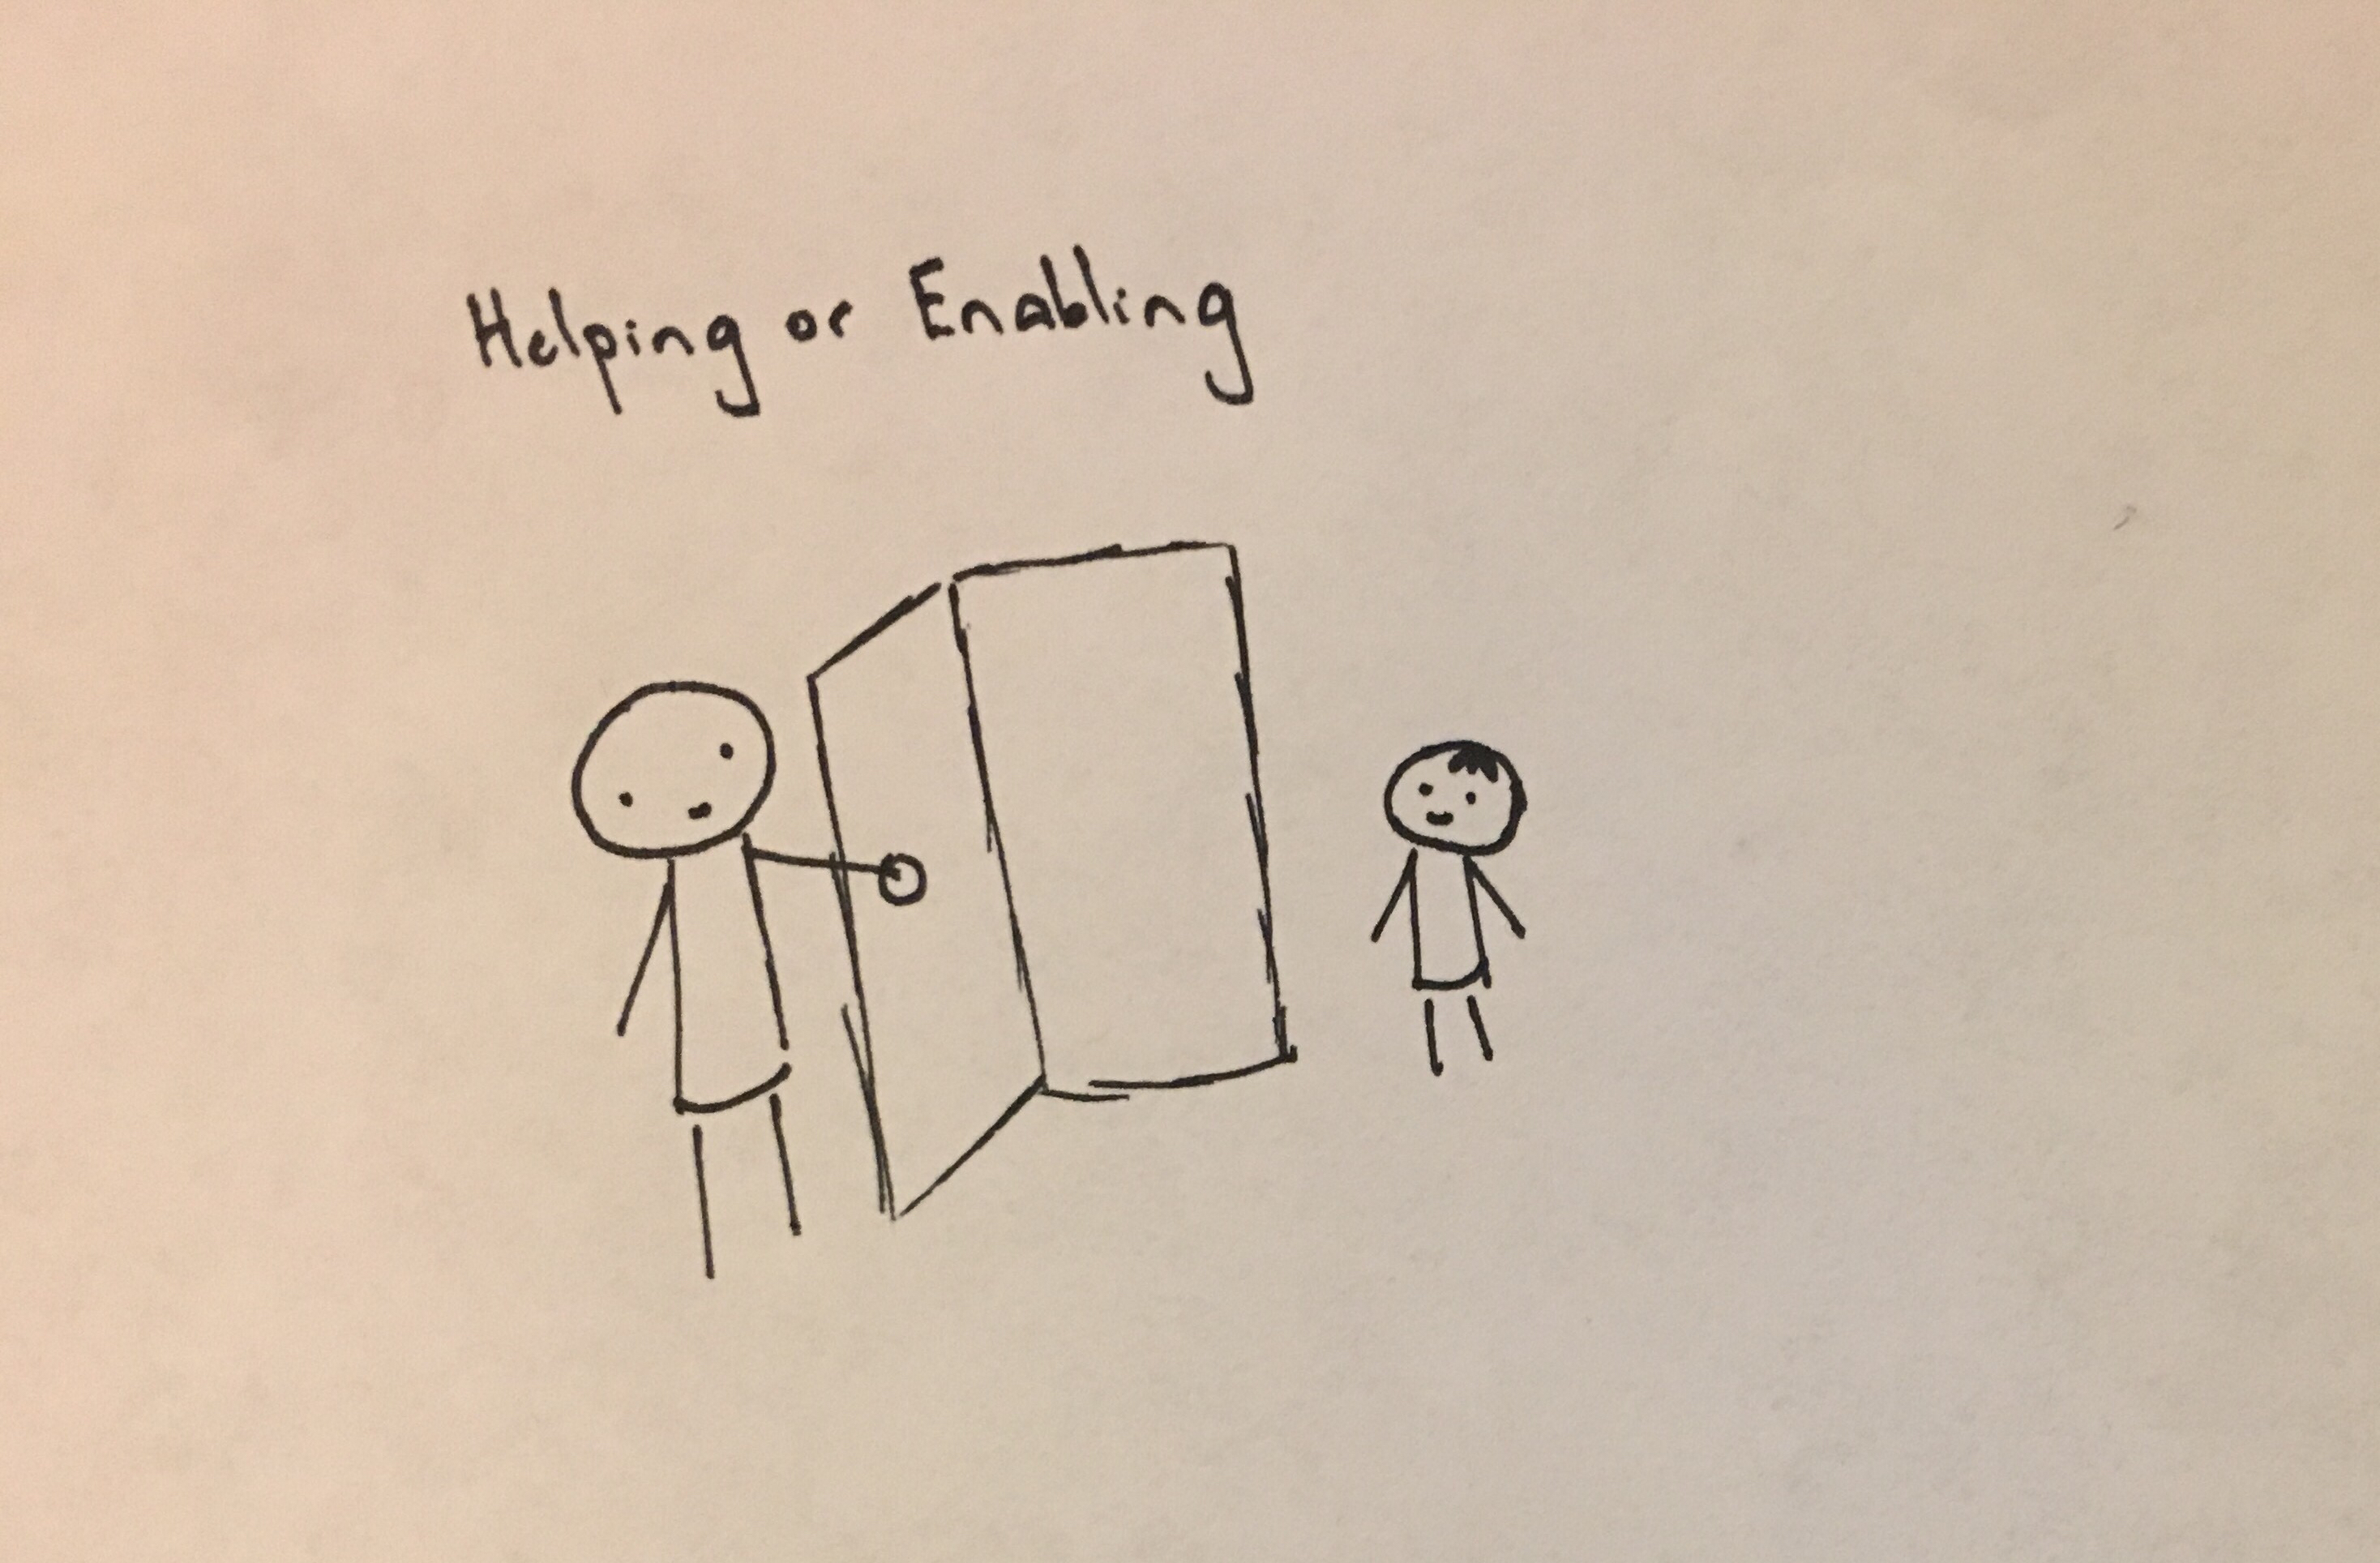 Helping or Enabling